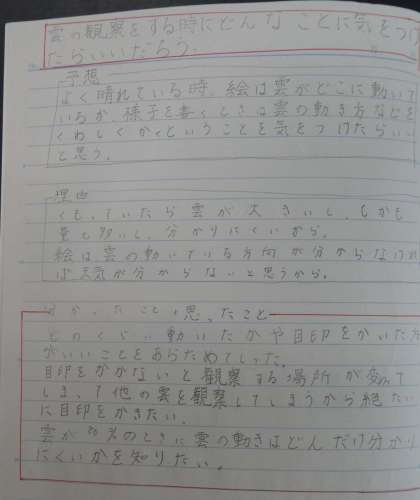 雲の観察をする時にどんなことに気をつけ
たらいいだろう。
予想
よく晴れている時、絵は雲がどこに動いて
いるか、様子を書くときは雲の動き方などを
くわしくかくということを気をつけたらいい
と思う。
理由
くもっていたら雲が大きいし、しかも
量も多いし、分かりにくいから。
絵は雲の動いている方向が分からなければ
ば天気が分からないと思うから。
分かったこと・思ったこと
どのくらい動いたかや目印をかいた方
がいいことをあらためてしった。
目印をかかないと観察する場所が変わって
しまって他の雲を観察してしまうから絶たい
に目印をかきたい。
雲が のときに雲の動きはどんだけ分かり
にくいかを知りたい。